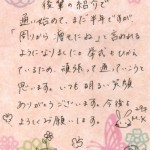 後輩の紹介で
通い始めて、まだ半年ですが、
「周りから瘦せたね」と言われる
ようになりました。挙式もひかえ
ているため、頑張って通っていこうと
思います。いつも明るい笑顔
ありがとうございます。今後も
よろしくお願いします。
M.K